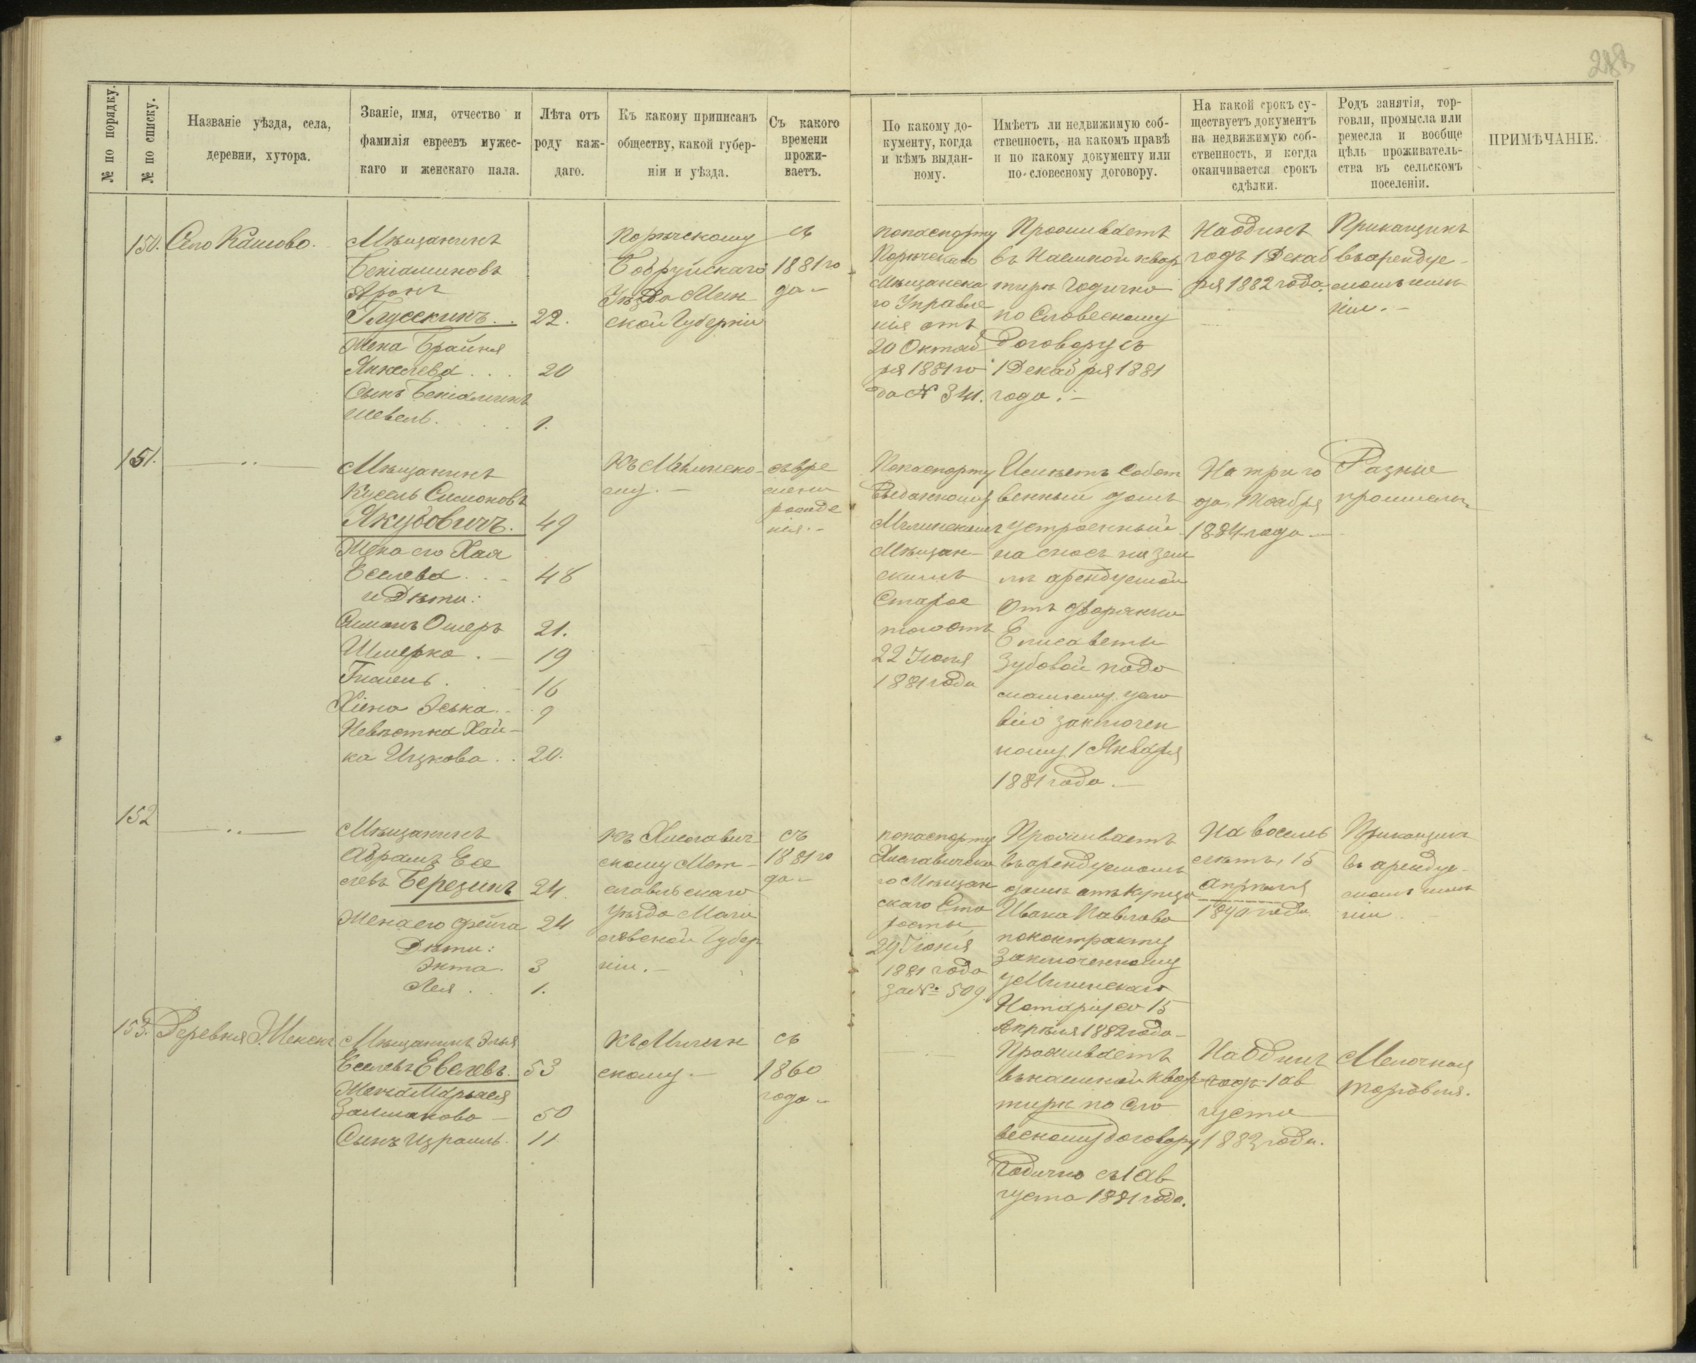 288
№ по порядку.
№ по списку.
Названіе уѣзда, села,
деревни, хутора.
Званіе, имя, отчество и
фамилія евреевъ мужес-
каго и женскаго пала.
Лѣта отъ
роду каж-
даго.
Къ какому приписанъ
обществу, какой губер-
ніи и уѣзда.
Съ какого
времени
прожи-
ваетъ.
По какому до-
кументу, когда
и кѣмъ выдан-
ному.
Имѣетъ ли недвижимую соб-
ственность, на какомъ правѣ
и по какому документу или
по-словесному договору.
На какой срокъ су-
ществуетъ документъ
на недвижимую соб-
ственность, и когда
оканчивается срокъ
сдѣлки.
Родъ занятія, тор-
говли, промысла или
ремесла и вообще
цѣль проживатель-
ства въ сельскомъ
поселеніи.
ПРИМѢЧАНІЕ.
150.
Село Кашово.
Мѣщанинъ
Беніаминовъ
Аронъ
Глускинъ . . 22.
Жена Брайня
Янкелева . . . 20
Сынъ Беніаминъ
Шевель. . . . 1.
Порѣчскому
Бобруйскаго
Уѣзда Мин-
ской Губерніи
съ
1881 го
да
попаспорту
Порѣчскаго
Мѣщанска
го Управле
нія отъ
20 Октяб
ря 1881 го
да № 341.
Проживаетъ
въ Наемной квар
тирѣ Годично
по Словесному
договору съ
1 Декабря 1881
года. –
На одинъ
годъ 1 Декаб
ря 1882 года.
Прикащикъ
въ арендуе-
момъ имѣ-
ніи. –
151.
— ,, —
Мѣщанинъ
Кусель Симоновъ
Якубовичъ. 49
Жена его Хая
Еселева . . – 48
и Дѣти:
Симонъ Ошеръ 21.
Шмерка . – 19
16
9
Невѣстка Хай-
ка Ицкова . . 20.
Къ Мглинско-
му. –
съ вре
мени
рожде
нія. –
Попаспорту
Выданному
Мглинскимъ
Мѣщан-
скимъ
Старос
тою отъ
22 Іюня
1881 года
Имѣетъ Собст
венный домъ
устроенный
на сносъ на зем
лѣ арендуемой
отъ дворянки
Елисаветы
Зубовой по до
машнему усло
вію заключен
ному 1 Января
1881 года. –
На три го
да,
1884 года –
Разные
промыслы
152
— ,, —
Мѣщанинъ
Абрамъ Есе
левъ Березинъ 24.
Жена его Фейга 24
Дѣти:
Экта. 3
Лея . . 1.
къ Хиславич
скому Мст-
иславльскаго
Уѣзда Моги
левской Губер
ніи. –
съ
1881 го
да –
попаспорту
Хиславичска
го Мѣщан
скаго Ста
росты,
29 Іюня
1881 года
за № 509.
Проживаетъ
въ арендуемомъ
домѣ отъ купца
Ивана Павлова
поконтракту
заключенному
у Мглинскаго
Нотаріуса 15
Апрѣля 1882 года –
На восемь
лѣтъ, 15
Апрѣля
1890 года
Прикащикъ
въ аренду-
емомъ имѣ
ніи
153.
Деревня
Мѣщанинъ Элья
Еселевъ Евелевъ. 53
Жена Марьяся
Залманова – 50
Сынъ Израиль. 11
Къ Мглин
скому –
съ
1860
года –
Проживаетъ
въ наемной квар
тирѣ по сло
весному договору
Годично съ 1 Ав
густа 1881 года.
На Одинъ
годъ 1 ав
густа
1883 года.
Мелочная
торговля.